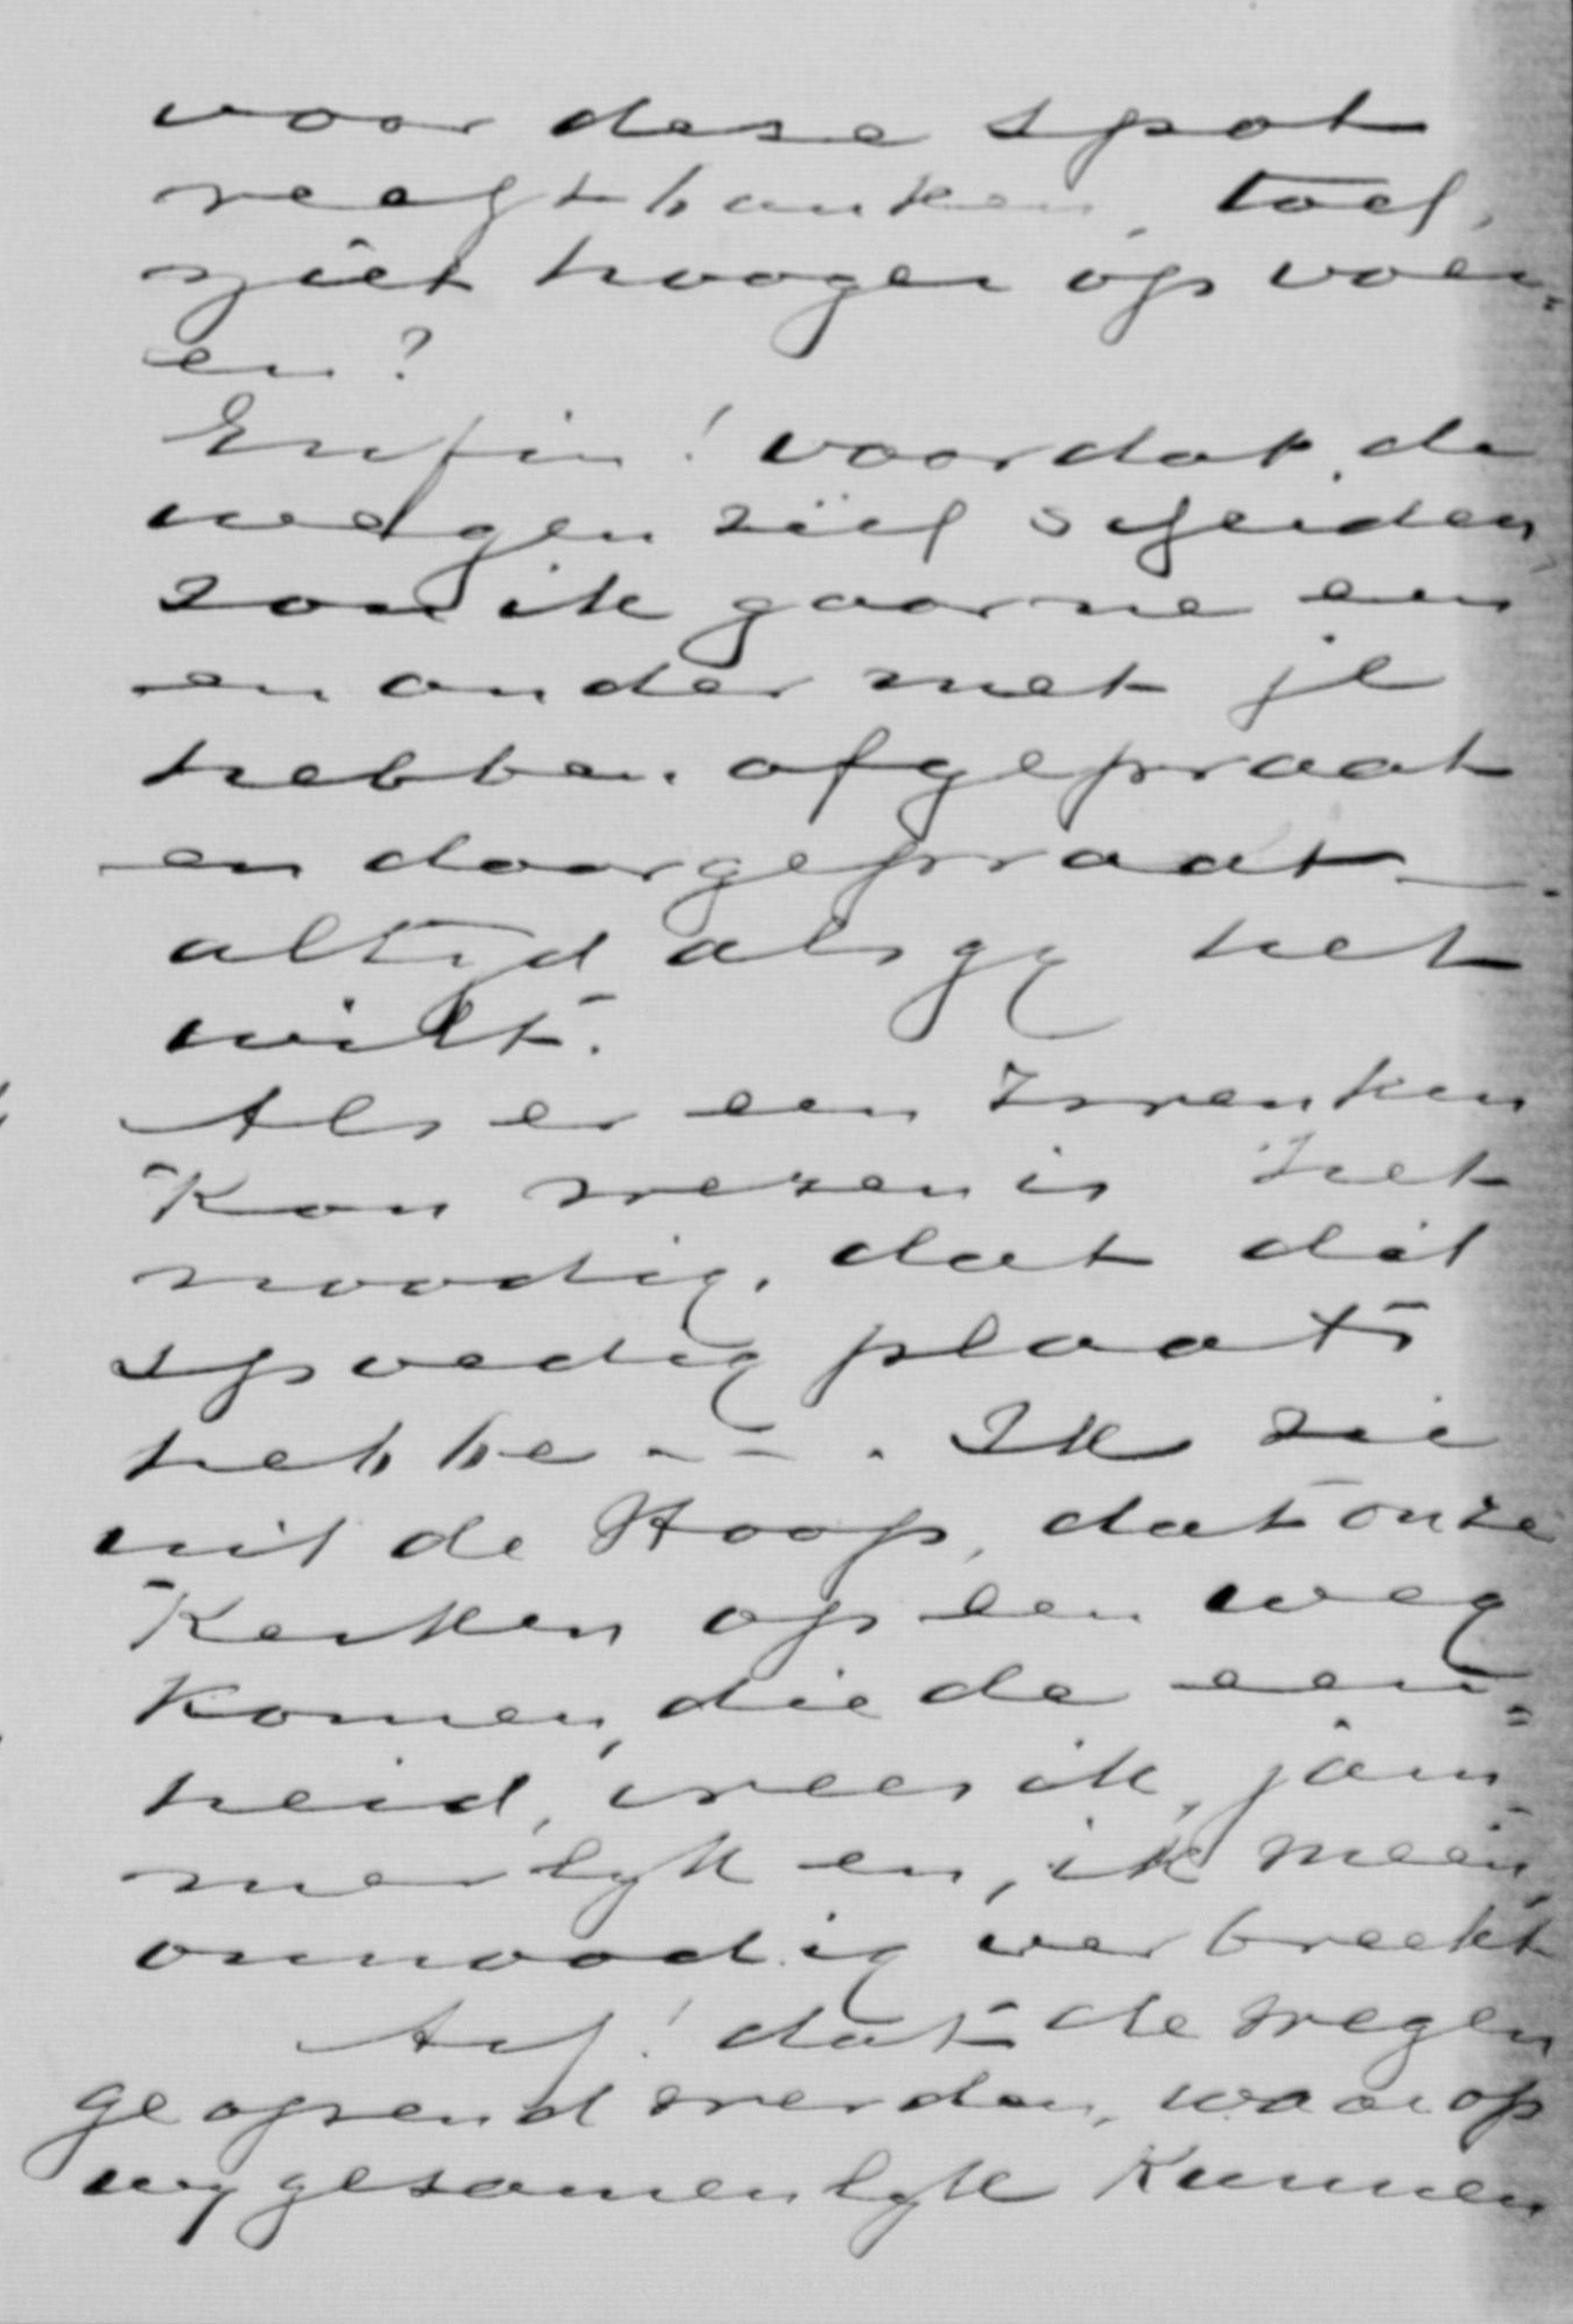 voor deze spot
regtbanken, toch
niet hooger op voer=
en?
Enfin! voordat de
wegen zich scheiden,
zou ik gaarne een
en ander met je
hebben afgepraat
en doorgepraat —.
altijd als gy het
wilt.
Als er een
Kon wezen is het
noodig, dat dit
spoedig plaats
hebbe --. Ik zie
uit de Hoop, dat onze
Kerken op een weg
komen, die de een=
heid, vrees ik, jam=
merlyk en, ik meen,
onnoodig verbreekt
Ach! dat de wegen
geopend werden, waarop
wy gezamenlyk Kunnen